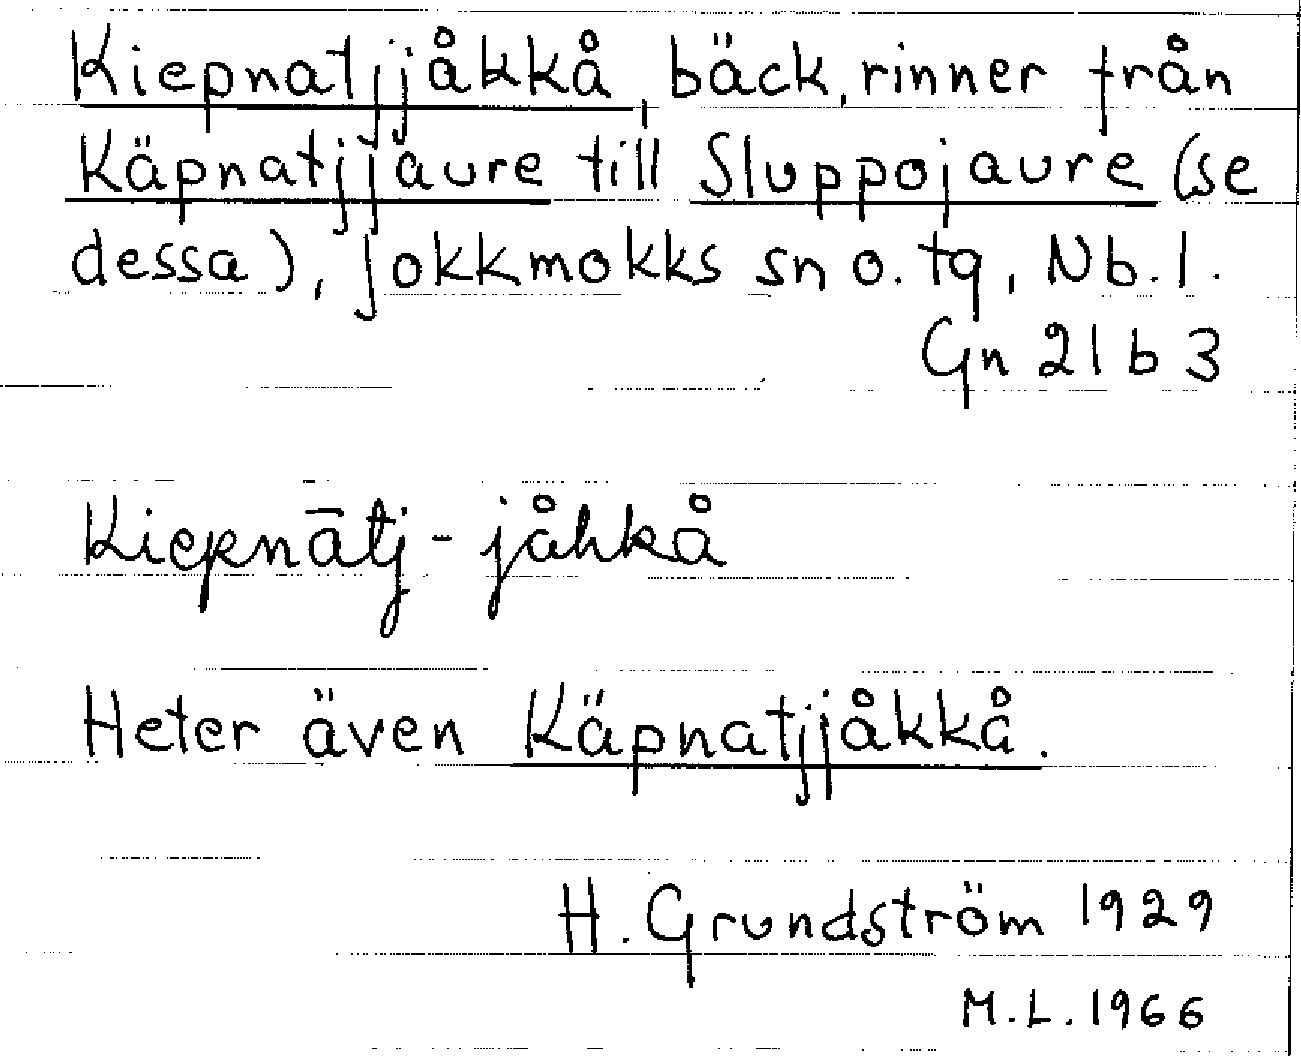 Kiepnatjjåkkå, bäck, rinner från
Käpnatjjaure till Sluppojaure (se
dessa), Jokkmokks sn o. tg, Nb. l.
Gn 21 b 3
Kiepnātj-jåhkå
Heter även Käpnatjjåkkå.
H. Grundström 1929
M.L. 1966